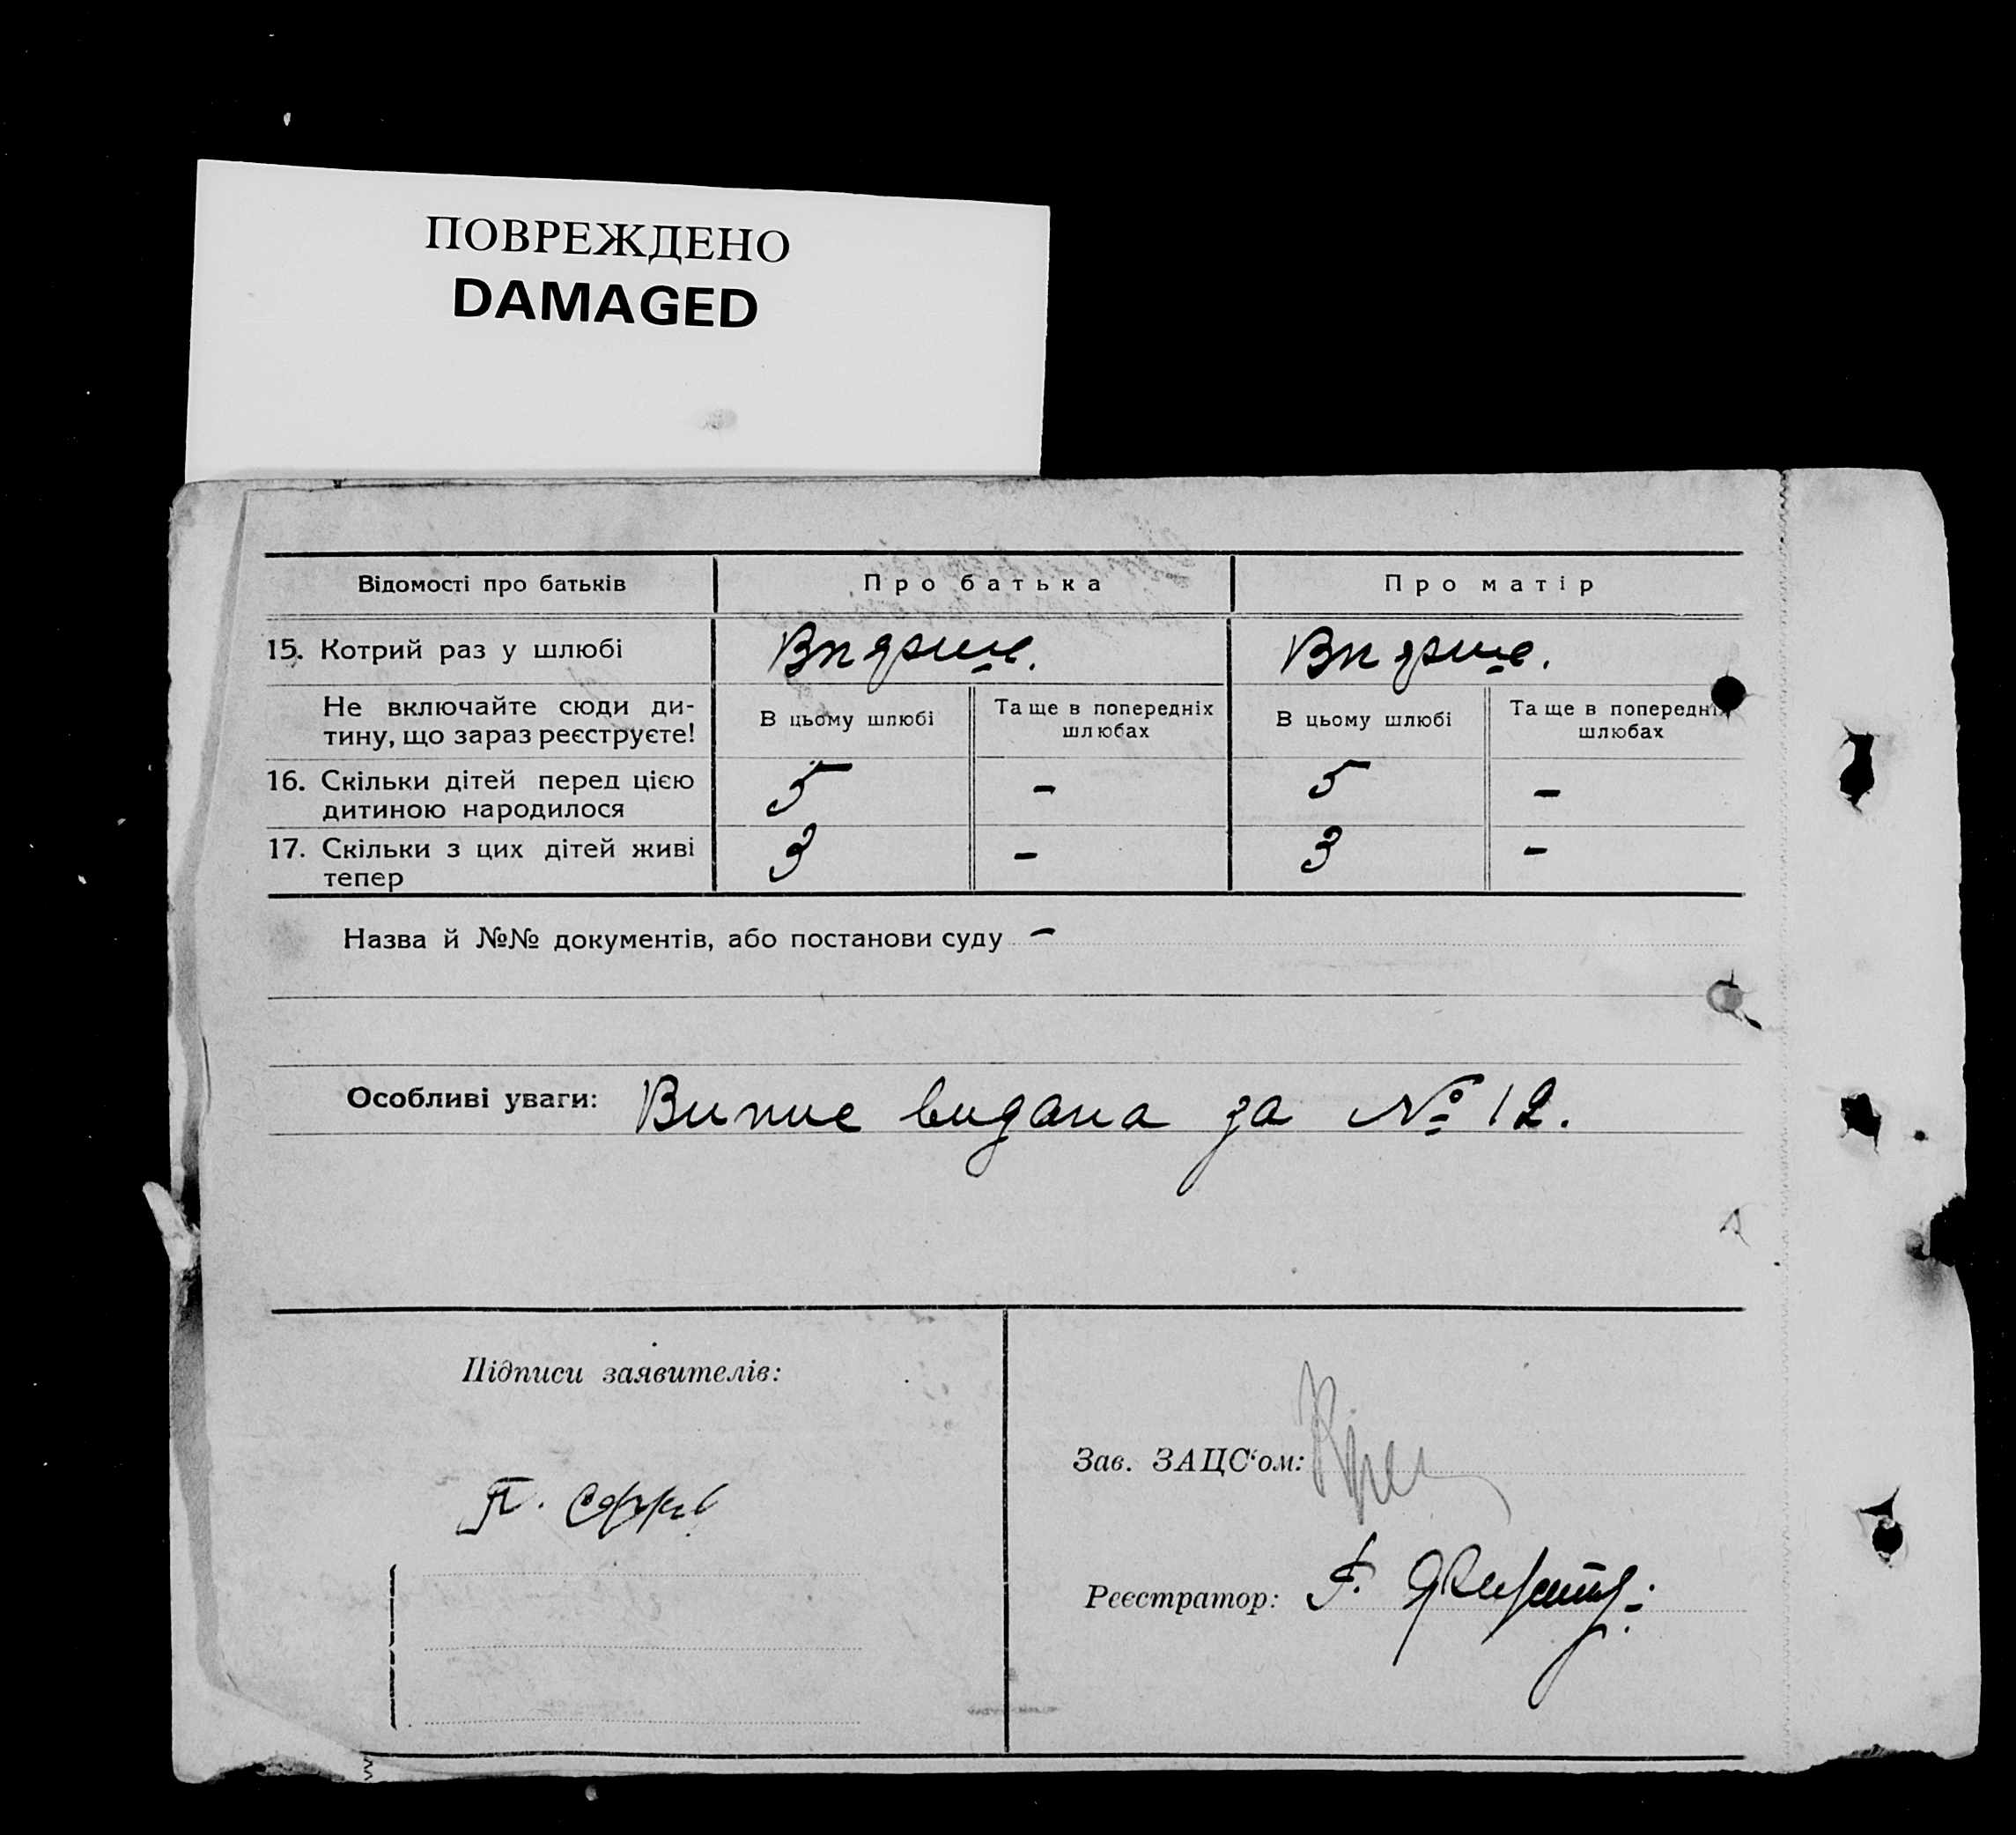 ПОВРЕЖДЕНО
DAMAGED
Відомості про батьків
Про батька
Про матір
15. Котрий раз у шлюбі
Вперше.
Вперше.
Не включайте сюди ди-
тину, що зараз реєструєте!
В цьому шлюбі
Та ще в попередніх
шлюбах
В цьому шлюбі
Та ще в попередніх
шлюбах
16. Скільки дітей перед цією
дитиною народилося
5
-
5
-
17. Скільки з цих дітей живі
тепер
3
-
3
-
Назва й №№ документів, або постанови суду -
Особливі уваги: Випис видана за № 12.
Підписи заявителів:
П.
Зав. ЗАЦС‘ом:
Реєстратор: